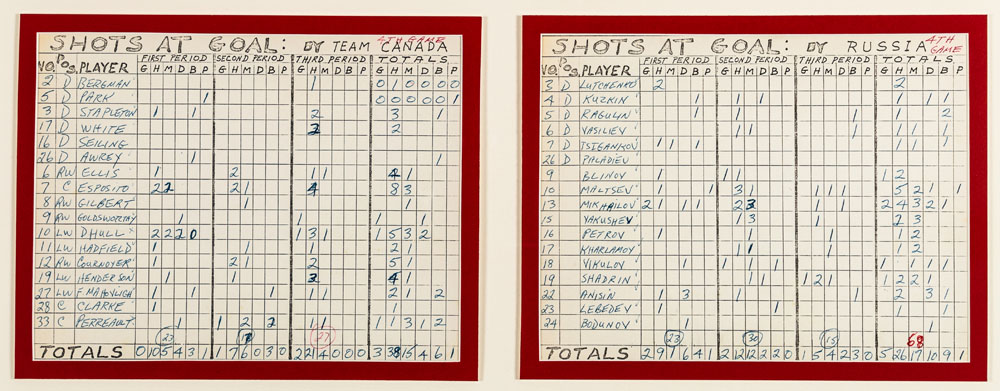 SHOTS AT GOAL: BY TEAM CANADA 4TH GAME
FIRST PERIOD SECOND PERIOD THIRD PERIOD TOTALS
NO. POS. PLAYER G H M D B P G H M D B P G H M D B P G H M D B P
2 D BERGMAN 1 0 1 0 0 0 0
5 D PARK 1 0 0 0 0 0 1
3 D STAPLETON 1 1 2 3 1
17 D WHITE 2 2
16 D SEILING
26 D AWREY 1 1
6 RW ELLIS 1 2 1 1 4 1
7 C ESPOSITO 2 2 2 1 4 8 3
8 RW GILBERT 1 1
9 RW GOLDSWORTHY 1 1 1 1
10 LW DHULL 2 2 2 0 1 3 1 1 5 3 2
11 LW HADFIELD 1 1 1 1 2 1
12 RW COURNOYER 1 2 1 2 5 1
19 LW HENDERSON 1 1 2 4 1
27 LW F MAHOVLICH 1 1 1 1 1 2 1 2
28 C CLARKE 1 1
33 C PERREAULT 1 1 2 2 1 1 1 1 3 1 2
23 18 27
TOTALS 0 10 5 4 3 1 1 7 6 0 3 0 2 21 4 0 0 0 3 38 15 4 6 1
SHOTS AT GOAL: BY RUSSIA 4TH GAME
FIRST PERIOD SECOND PERIOD THIRD PERIOD TOTALS
NO. POS. PLAYER G H M D B P G H M D B P G H M D B P G H M D B P
3 D LUTCHENKO 2 2
4 D KUZKIN 1 1 1 1 1 1
5 D RAGULIN 1 1 1 1 2
6 D VASILIEV 1 1 1 1 1 1
7 D TSIGANKOV 1 1 1 1 1 1
26 D PALADIEV
9 BLINOV 1 1 1 1 2
10 MALTSEV 1 1 1 3 1 1 1 1 5 2 1 1
13 MIKHAILOV 2 1 1 1 2 3 1 1 1 2 4 3 2 1
15 YAKUSHEV 1 3 1 2 3
16 PETROV 1 1 1 1 2
17 KHARLAMOV 1 1 1 2
18 VIKULOV 1 1 1 1 1 1 1 1 1 1
19 SHADRIN 1 1 1 2 1 1 2 2 1
22 ANISIN 1 3 1 1 2 3 1
23 LEBEDEV 1 1 1 1
24 BODUNOV 1 1
23 30 15 68
TOTALS 2 9 1 6 4 1 2 12 12 2 2 0 1 5 4 2 3 0 5 26 17 10 9 1